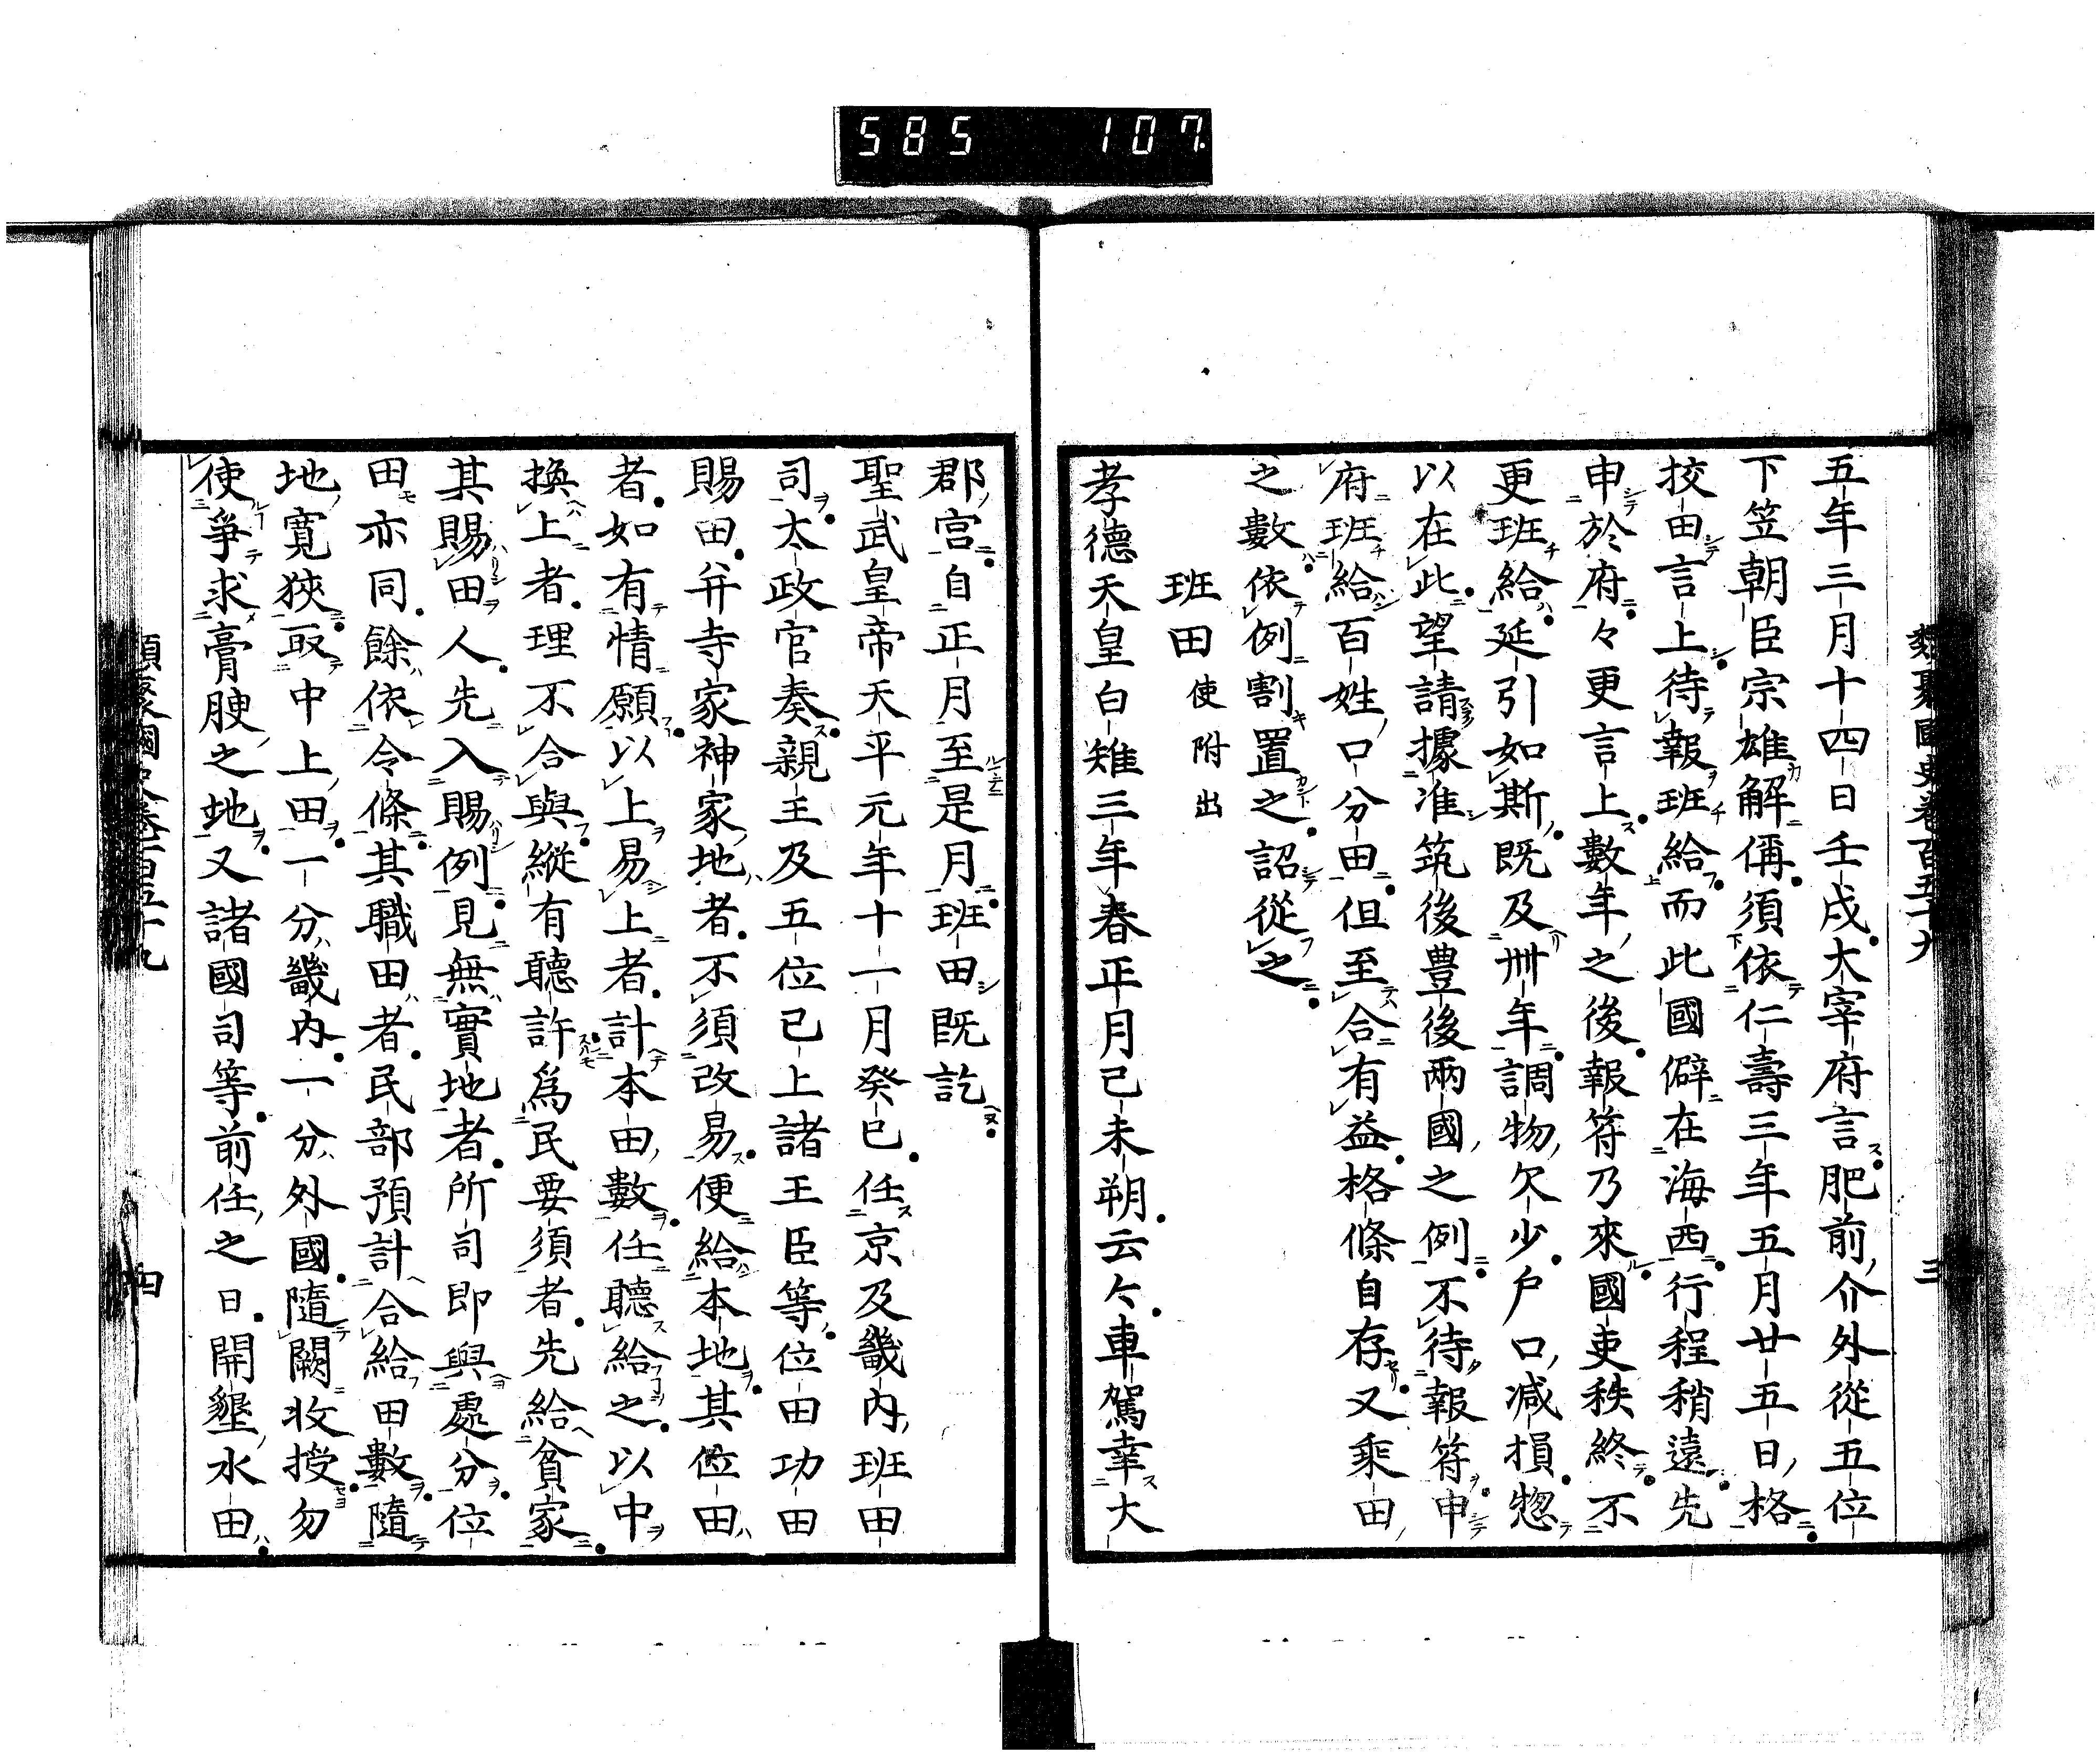 585 107
類聚國史卷百五十九 三
五年三月十四日壬戌大宰府言肥前介外從五位
下笠朝臣宗雄解偁須依仁壽三年五月廿五日格
挍田言上待報班給而此國僻在海西行程稍遠先
申於府々更言上數年之後報符乃來國吏秩終不
更班給延引如斯既及卅年調物欠少戶口減損惣
以在此望請據准筑後豊後兩國之例不待報符申
府班給百姓口分田但至合有益格條自存又乘田
之數依例割置之詔從之
班田 使附出
孝德天皇白雉三年春正月己未朔云々車駕幸大
郡宮自正月至是月班田既訖
聖武皇帝天平元年十一月癸巳任京及畿內班田
司太政官奏親王及五位已上諸王臣等位田功田
賜田并寺家神家地者不須改易便給本地其位田
者如有情願以上易上者計本田數任聽給之以中
換上者理不合與縱有聽許爲民要須者先給貧家
其賜田人先入賜例見無實地者所司即與處分位
田亦同餘依令條其職田者民部預計合給田數隨
地寬狹取中上田一分畿內一分外國隨闕收授勿
使爭求膏腴之地又諸國司等前任之日開墾水田
類聚國史卷百五十九 四